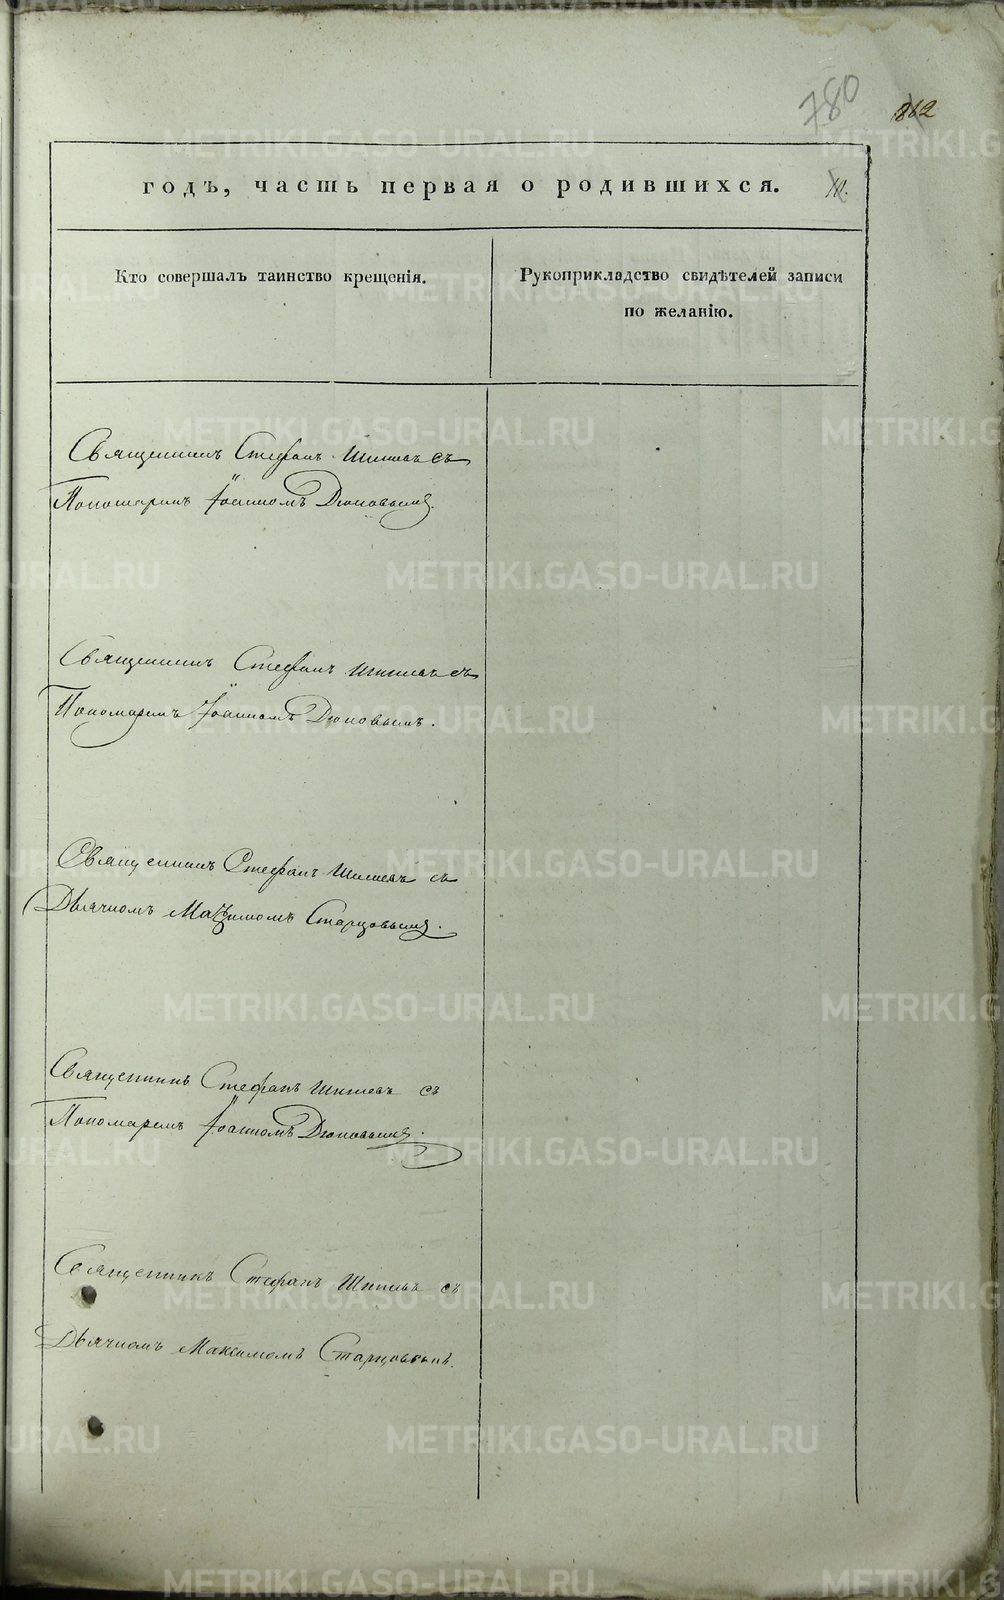 780
годъ, часть первая о родившихся.
Кто совершалъ таинство крещенія.
Рукоприкладство свидѣтелей записи
по желанію.
Священникъ Стефанъ Шишевъ съ
Пономаремъ Іоанномъ Дюковымъ.
Священникъ Стефанъ Шишевъ съ
Пономаремъ Іоанномъ Дюковымъ.
Священникъ Стефанъ Шишевъ съ
Дьячкомъ Максимомъ Старцовымъ.
Священникъ Стефанъ Шишевъ съ
Пономаремъ Іоанномъ Дюковымъ.
Священникъ Стефанъ Шишевъ съ
Дьячкомъ Максимомъ Старцовымъ.
METRIKI.GASO-URAL.RU